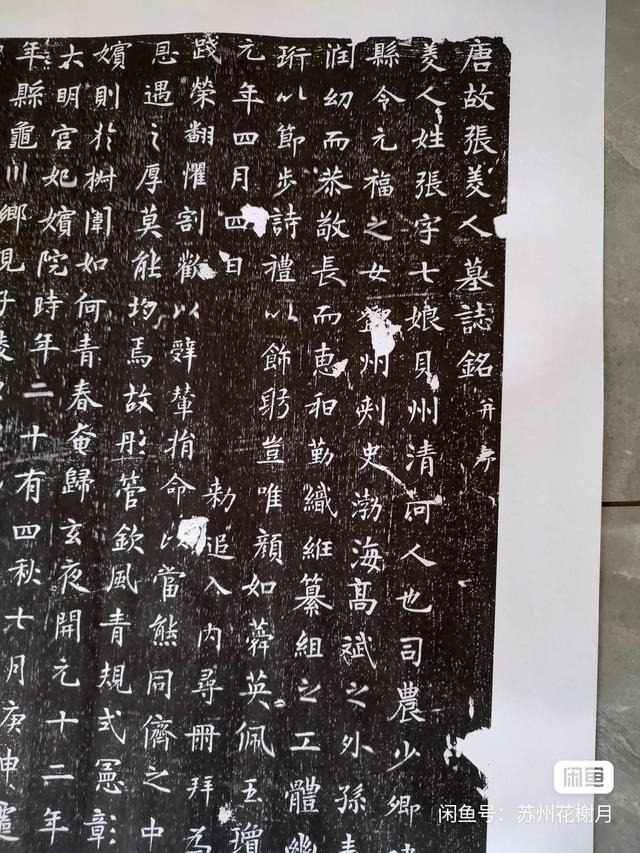 唐故張美人墓誌銘 并序
美人姓張字七娘貝州清河人也司農少卿
縣令元福之女州刾史渤海高斌之外孫
潤幼而恭敬長而惠和勤織紝纂組之工體幽
珩以節步詩禮以飾躬豈唯顏如蕣英佩玉瓊
元年四月四日 勑追入内尋冊拜為
踐榮翻懼割歡以辭輦捐命以當熊同儕之中
恩遇之厚莫能均焉故彤管欽風青規式憲彰
嬪則於椒闈如何青春奄歸玄夜開元十二年
大明宮妃嬪院時年二十有四秋七月庚申遷
年縣龜川鄉見子陵
闲鱼
闲鱼号：苏州花榭月